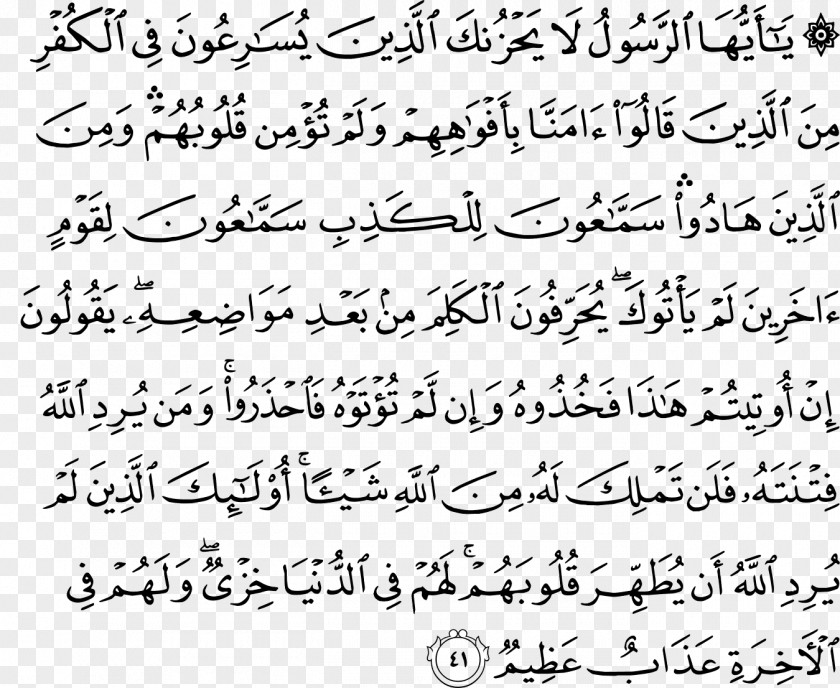 ۞ يَـٰٓأَيُّهَا ٱلرَّسُولُ لَا يَحْزُنكَ ٱلَّذِينَ يُسَـٰرِعُونَ فِى ٱلْكُفْرِ
مِنَ ٱلَّذِينَ قَالُوٓا۟ ءَامَنَّا بِأَفْوَٰهِهِمْ وَلَمْ تُؤْمِن قُلُوبُهُمْ ۛ وَمِنَ
ٱلَّذِينَ هَادُوا۟ ۛ سَمَّـٰعُونَ لِلْكَذِبِ سَمَّـٰعُونَ لِقَوْمٍ
ءَاخَرِينَ لَمْ يَأْتُوكَ ۖ يُحَرِّفُونَ ٱلْكَلِمَ مِنۢ بَعْدِ مَوَاضِعِهِۦ ۖ يَقُولُونَ
إِنْ أُوتِيتُمْ هَـٰذَا فَخُذُوهُ وَإِن لَّمْ تُؤْتَوْهُ فَٱحْذَرُوا۟ ۚ وَمَن يُرِدِ ٱللَّهُ
فِتْنَتَهُۥ فَلَن تَمْلِكَ لَهُۥ مِنَ ٱللَّهِ شَيْـًٔا ۚ أُو۟لَـٰٓئِكَ ٱلَّذِينَ لَمْ
يُرِدِ ٱللَّهُ أَن يُطَهِّرَ قُلُوبَهُمْ ۚ لَهُمْ فِى ٱلدُّنْيَا خِزْىٌ ۖ وَلَهُمْ فِى
ٱلْـَٔاخِرَةِ عَذَابٌ عَظِيمٌ ٤١